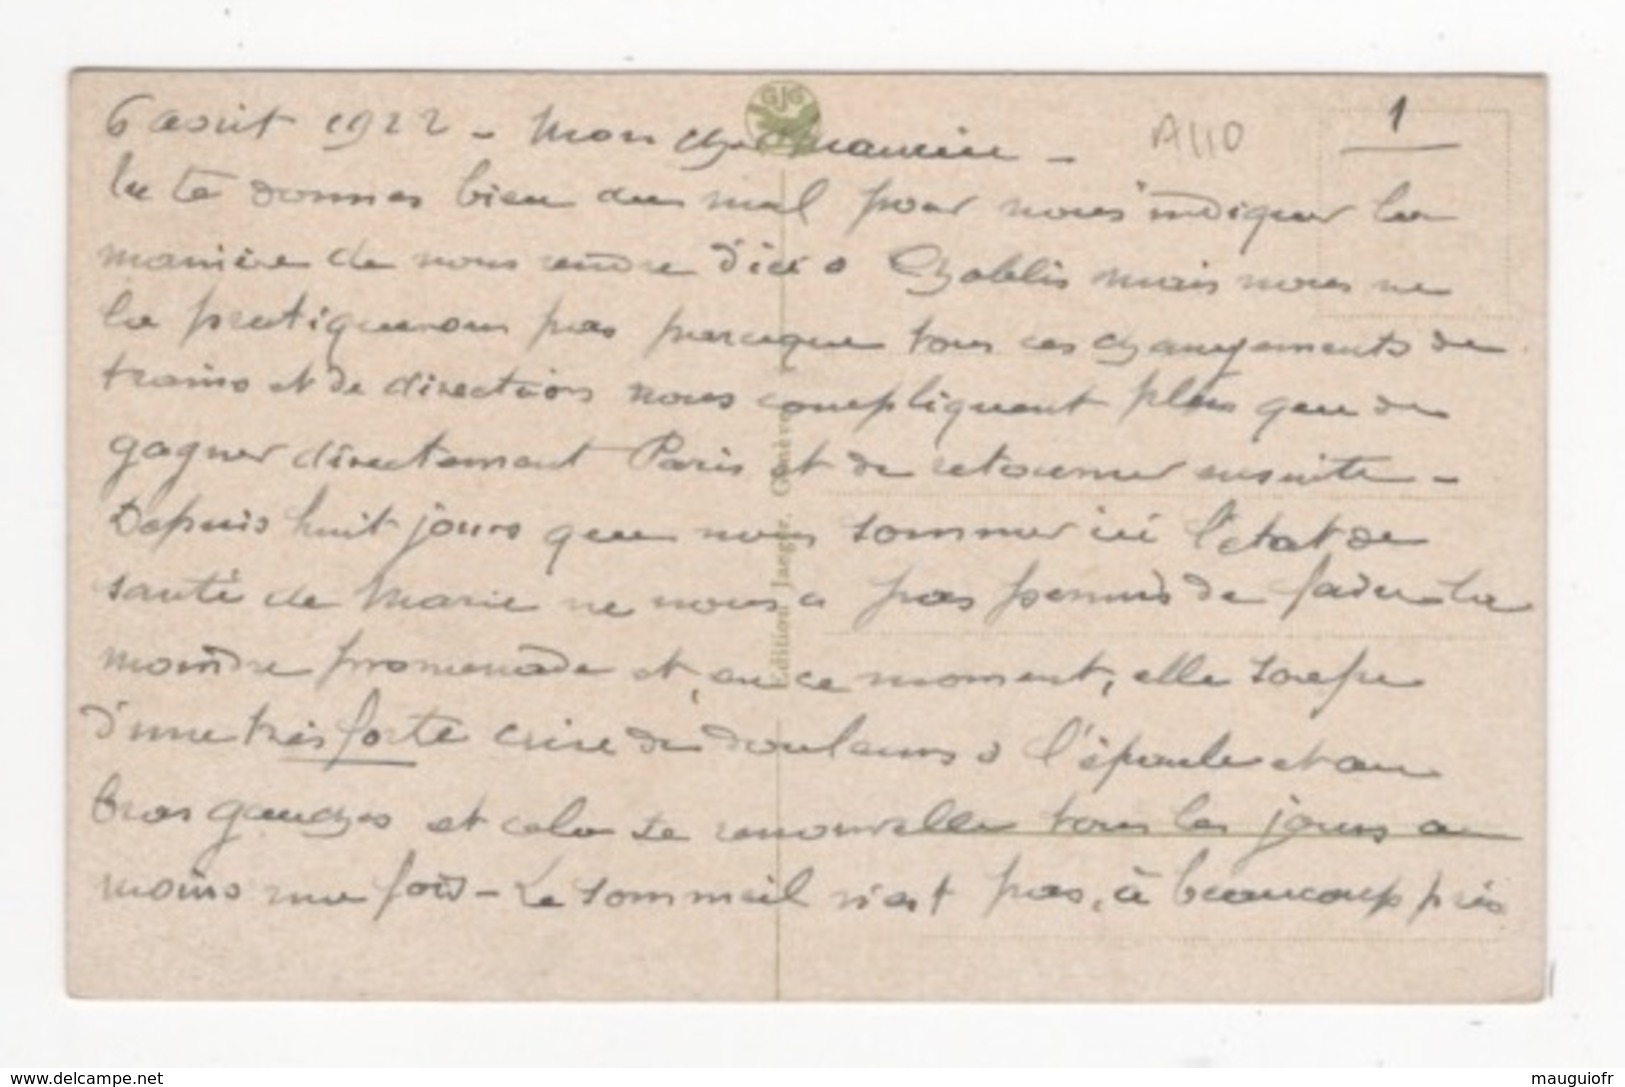 GJG
A110
1
6 août 1922 - Mon cher Maurice -
Tu te donnes bien du mal pour nous indiquer la
manière de nous rendre d'ici à Chablis mais nous ne
la pratiquerons pas parceque tous ces changements de
trains et de directions nous compliquent plus que de
gagner directement Paris et de retourner ensuite -
Depuis huit jours que nous sommes ici l'état de
santé de Marie ne nous a pas permis de faire la
moindre promenade et, en ce moment, elle souffre
d'une très forte crise de douleurs à l'épaule et au
bras gauches et cela se renouvelle tous les jours au
moins une fois - Le sommeil n'est pas, à beaucoup près
Edition Jaeger, Genève
www.delcampe.net
mauguiofr